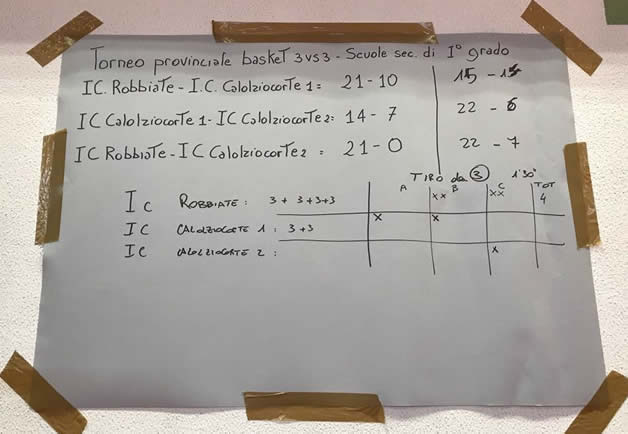 Torneo provinciale basket 3 vs 3 - Scuole sec. di I° grado
IC. Robbiate - I.C. Calolziocorte 1 = 21 - 10 15 - 15
IC Calolziocorte 1 - IC Calolziocorte 2 = 14 - 7 22 - 6
IC Robbiate - IC Calolziocorte 2 = 21 - 0 22 - 7
TIRO da 3 1'30"
A B C TOT
IC ROBBIATE : 3 + 3 + 3 + 3 xx xx 4
IC CALOLZIOCORTE 1 : 3 + 3 x x
IC CALOLZIOCORTE 2 : x